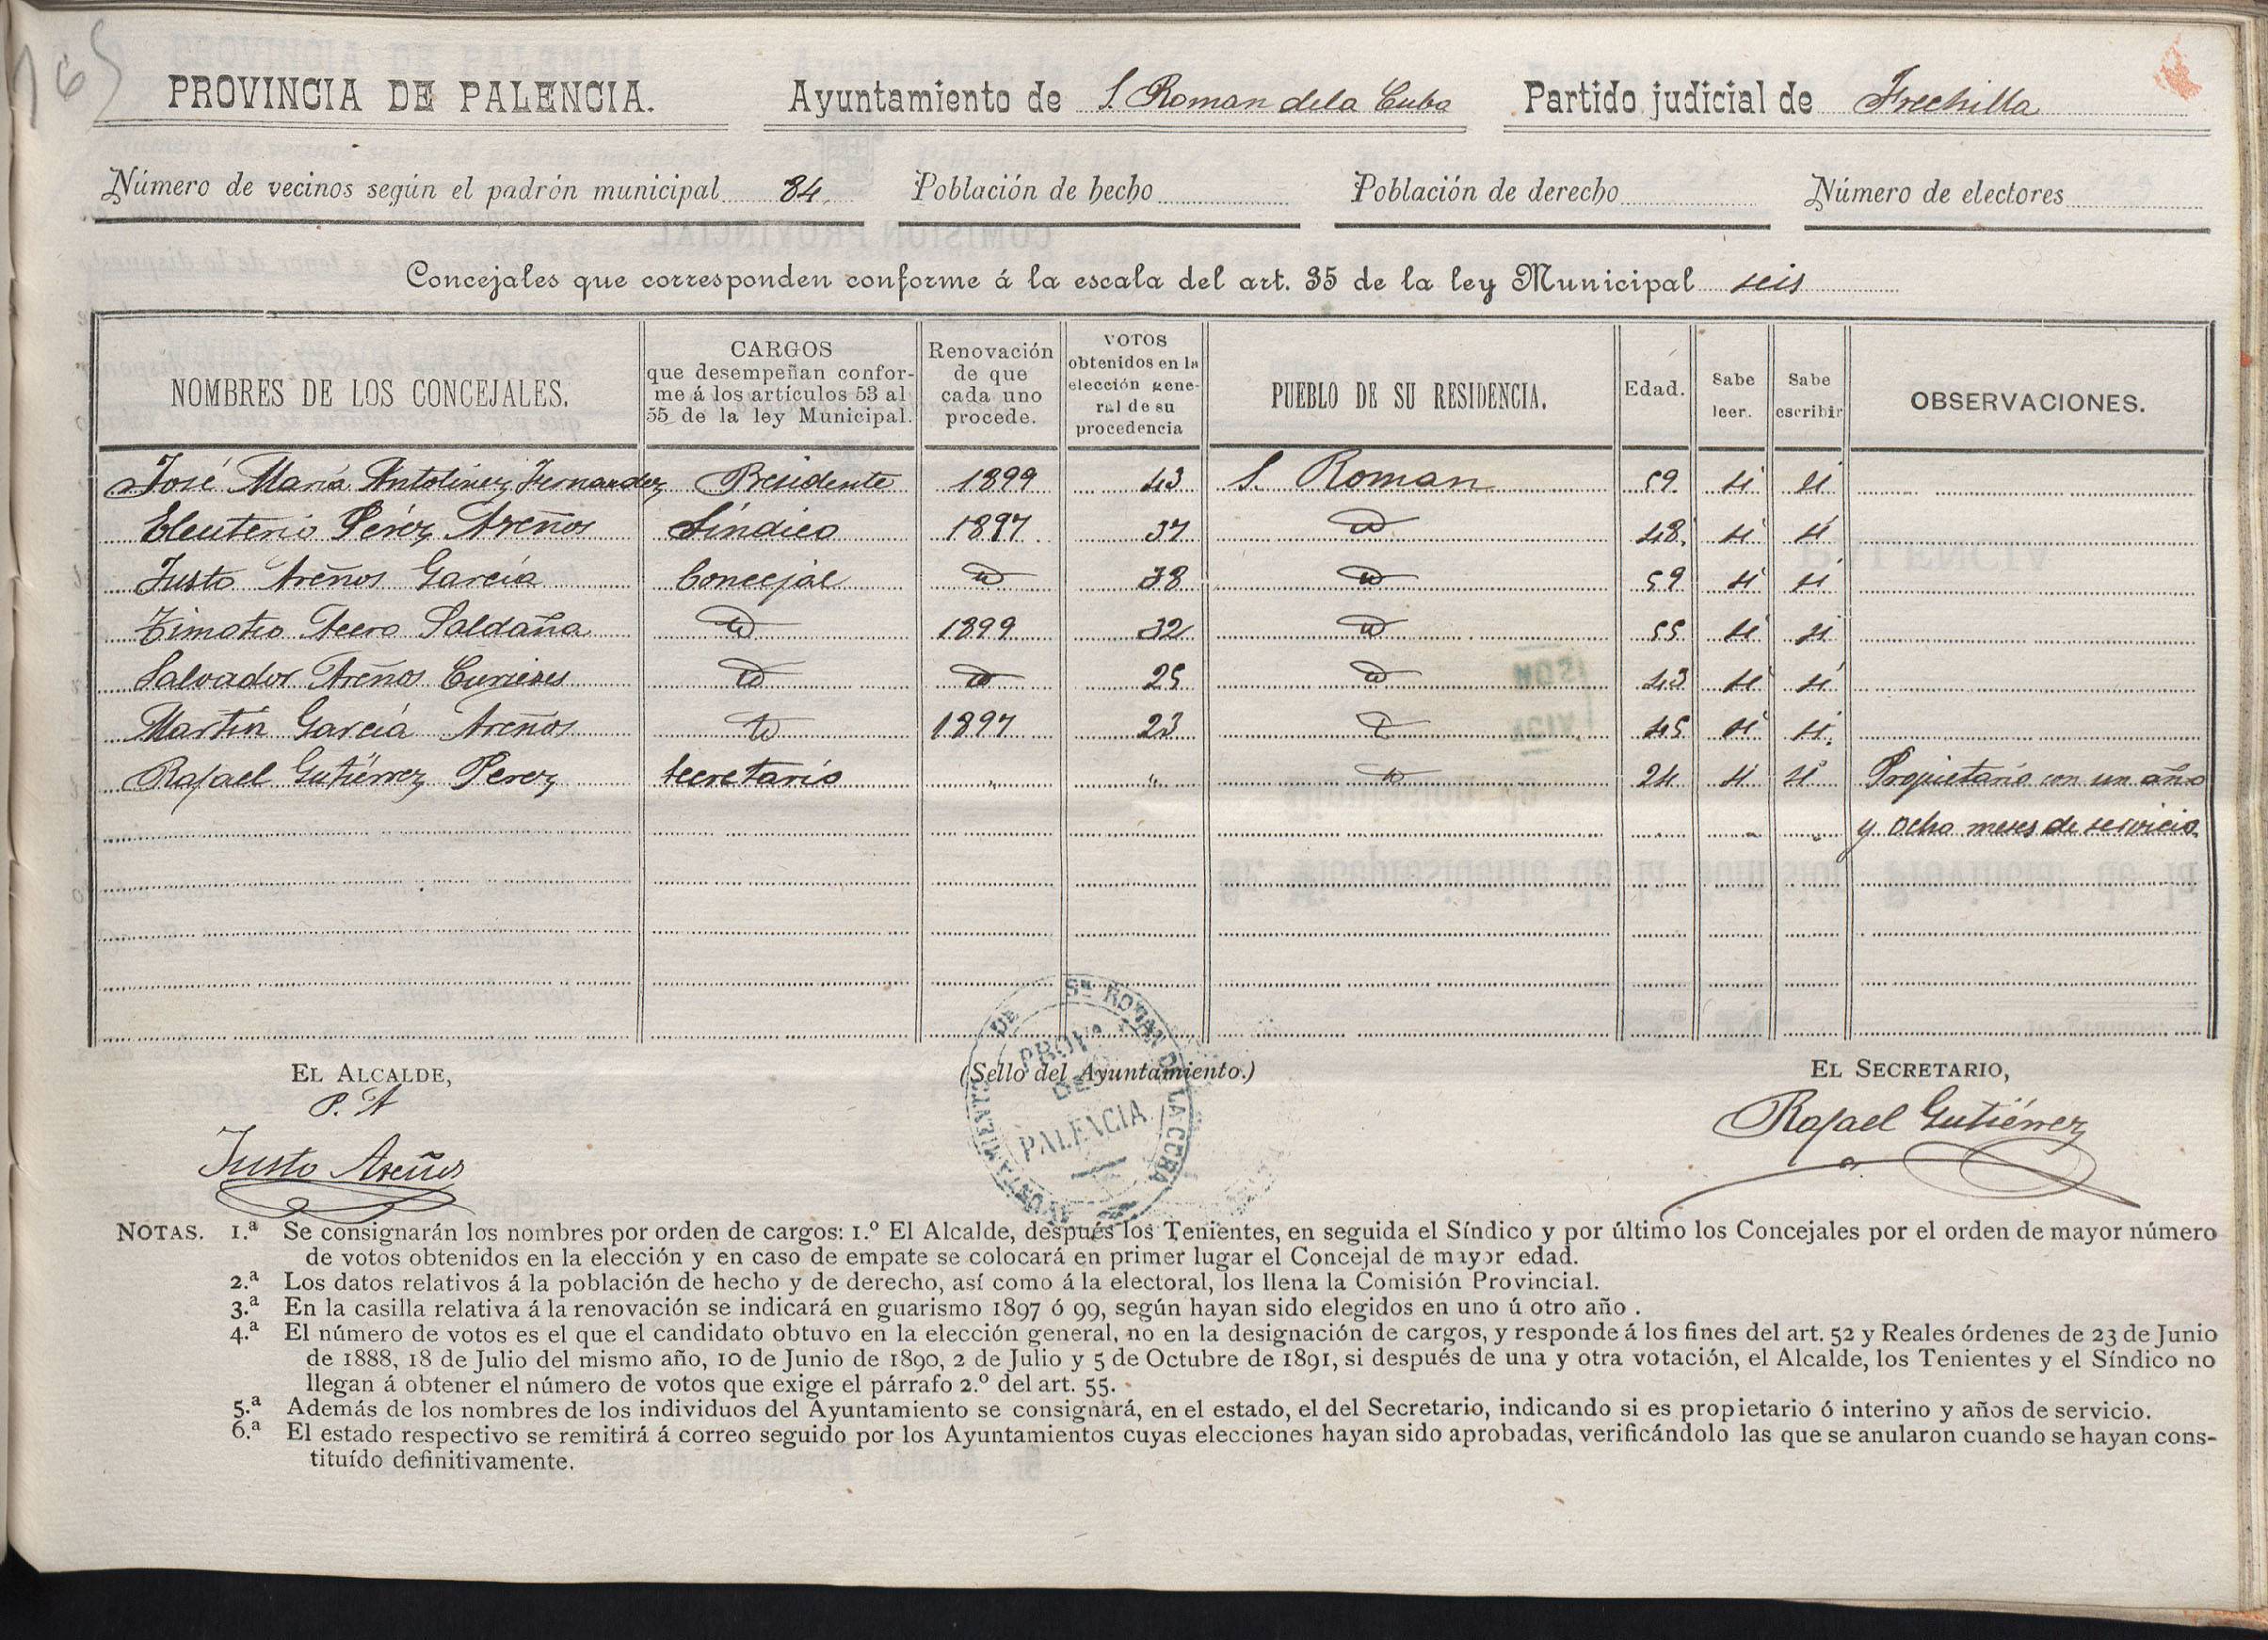 165
PROVINCIA DE PALENCIA. Ayuntamiento de S. Roman dela Cuba Partido judicial de Frechilla
Número de vecinos según el padrón municipal 84. Población de hecho Población de derecho Número de electores
Concejales que corresponden conforme á la escala del art. 35 de la ley Municipal seis
NOMBRES DE LOS CONCEJALES. CARGOS que desempeñan conforme á los artículos 53 al 55 de la ley Municipal. Renovación de que cada uno procede. VOTOS obtenidos en la elección general de su procedencia PUEBLO DE SU RESIDENCIA. Edad. Sabe leer. Sabe escribir OBSERVACIONES.
José María Antolinez Fernandez Presidente 1899 43 S. Roman 59. si si
Eleuterio Pérez Areños Síndico 1897 37 id 48. si si
Justo Areños García Concejal id 38 id 59 si si
Timoteo Acero Saldaña id 1899 32 id 55 si si
Salvador Areños Curieses id id 25 id 43 si si
Martín García Areños id 1897 23 id 45 si si.
Rafael Gutiérrez Perez Secretario " " id 24 si si Propietario con un año
y ocho meses de servicio.
EL ALCALDE, (Sello del Ayuntamiento.) EL SECRETARIO,
P. A
Justo Areños
Rafael Gutiérrez
AYUNTAMIENTO DE Sn. ROMAN DE LA CUBA
PROVª. DE PALENCIA
NOTAS. 1.ª Se consignarán los nombres por orden de cargos: 1.º El Alcalde, después los Tenientes, en seguida el Síndico y por último los Concejales por el orden de mayor número
de votos obtenidos en la elección y en caso de empate se colocará en primer lugar el Concejal de mayor edad.
2.ª Los datos relativos á la población de hecho y de derecho, así como á la electoral, los llena la Comisión Provincial.
3.ª En la casilla relativa á la renovación se indicará en guarismo 1897 ó 99, según hayan sido elegidos en uno ú otro año .
4.ª El número de votos es el que el candidato obtuvo en la elección general, no en la designación de cargos, y responde á los fines del art. 52 y Reales órdenes de 23 de Junio
de 1888, 18 de Julio del mismo año, 10 de Junio de 1890, 2 de Julio y 5 de Octubre de 1891, si después de una y otra votación, el Alcalde, los Tenientes y el Síndico no
llegan á obtener el número de votos que exige el párrafo 2.º del art. 55.
5.ª Además de los nombres de los individuos del Ayuntamiento se consignará, en el estado, el del Secretario, indicando si es propietario ó interino y años de servicio.
6.ª El estado respectivo se remitirá á correo seguido por los Ayuntamientos cuyas elecciones hayan sido aprobadas, verificándolo las que se anularon cuando se hayan cons-
tituído definitivamente.